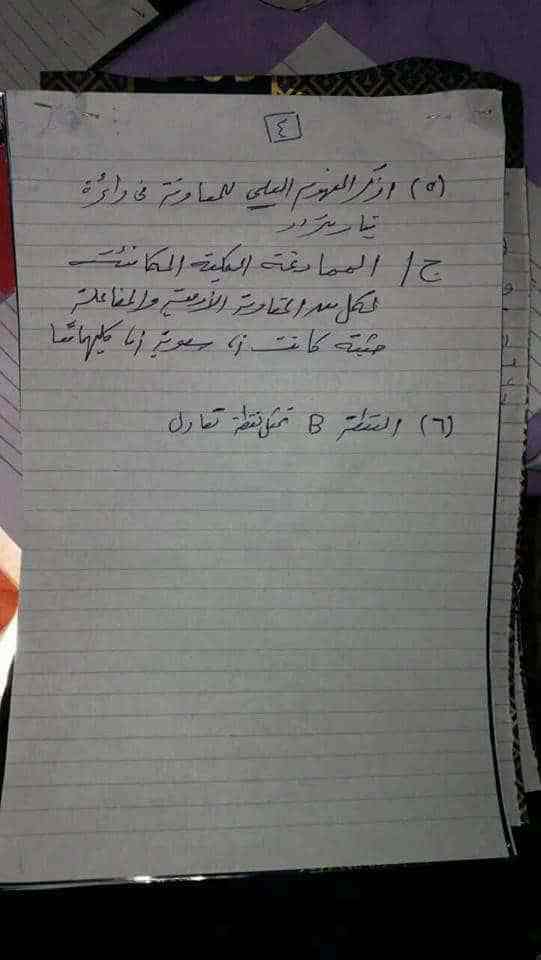 ٤
(٥) اذكر المفهوم العلمي للمعاوقة فى دائرة
تيار متردد
ج/ الممانعة الكلية المكافئة
لكل من المقاومة الأومية والمفاعلة
حثية كانت أم سعوية أم كليهما معًا
(٦) النقطة B تمثل نقطة تعادل